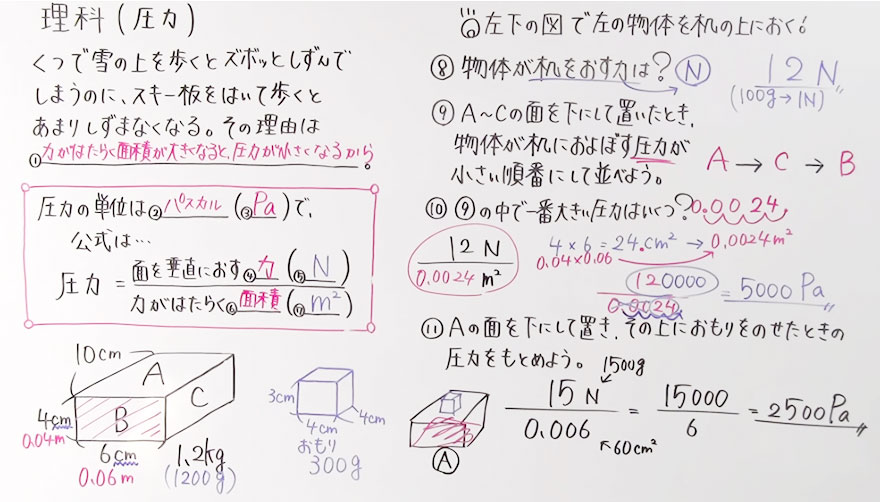 理科(圧力)
くつで雪の上を歩くとズボッとしずんで
しまうのに、スキー板をはいて歩くと
あまりしずまなくなる。その理由は
①力がはたらく面積が大きくなると、圧力が小さくなるから。
圧力の単位は②パスカル(③Pa)で、
公式は…
圧力 = 面を垂直におす④力(⑤N)
力がはたらく⑥面積(⑦m²)
10cm
A
B
C
4cm
0.04m
6cm
0.06m
1.2kg
(1200g)
3cm
4cm
4cm
おもり
300g
左下の図で左の物体を机の上におく。
⑧物体が机をおす力は?Ⓝ 12N
(100g→1N)
⑨A~Cの面を下にして置いたとき、
物体が机におよぼす圧力が
小さい順番にして並べよう。
A→C→B
⑩⑨の中で一番大きい圧力はいくつ?0.0024
12N
0.0024m²
4×6=24.cm²→0.0024m²
0.04×0.06
120000
0.0024
=5000Pa
⑪Aの面を下にして置き、その上におもりをのせたときの
圧力をもとめよう。1500g
Ⓐ
15N
0.006
60cm²
= 15000
6
= 2500Pa